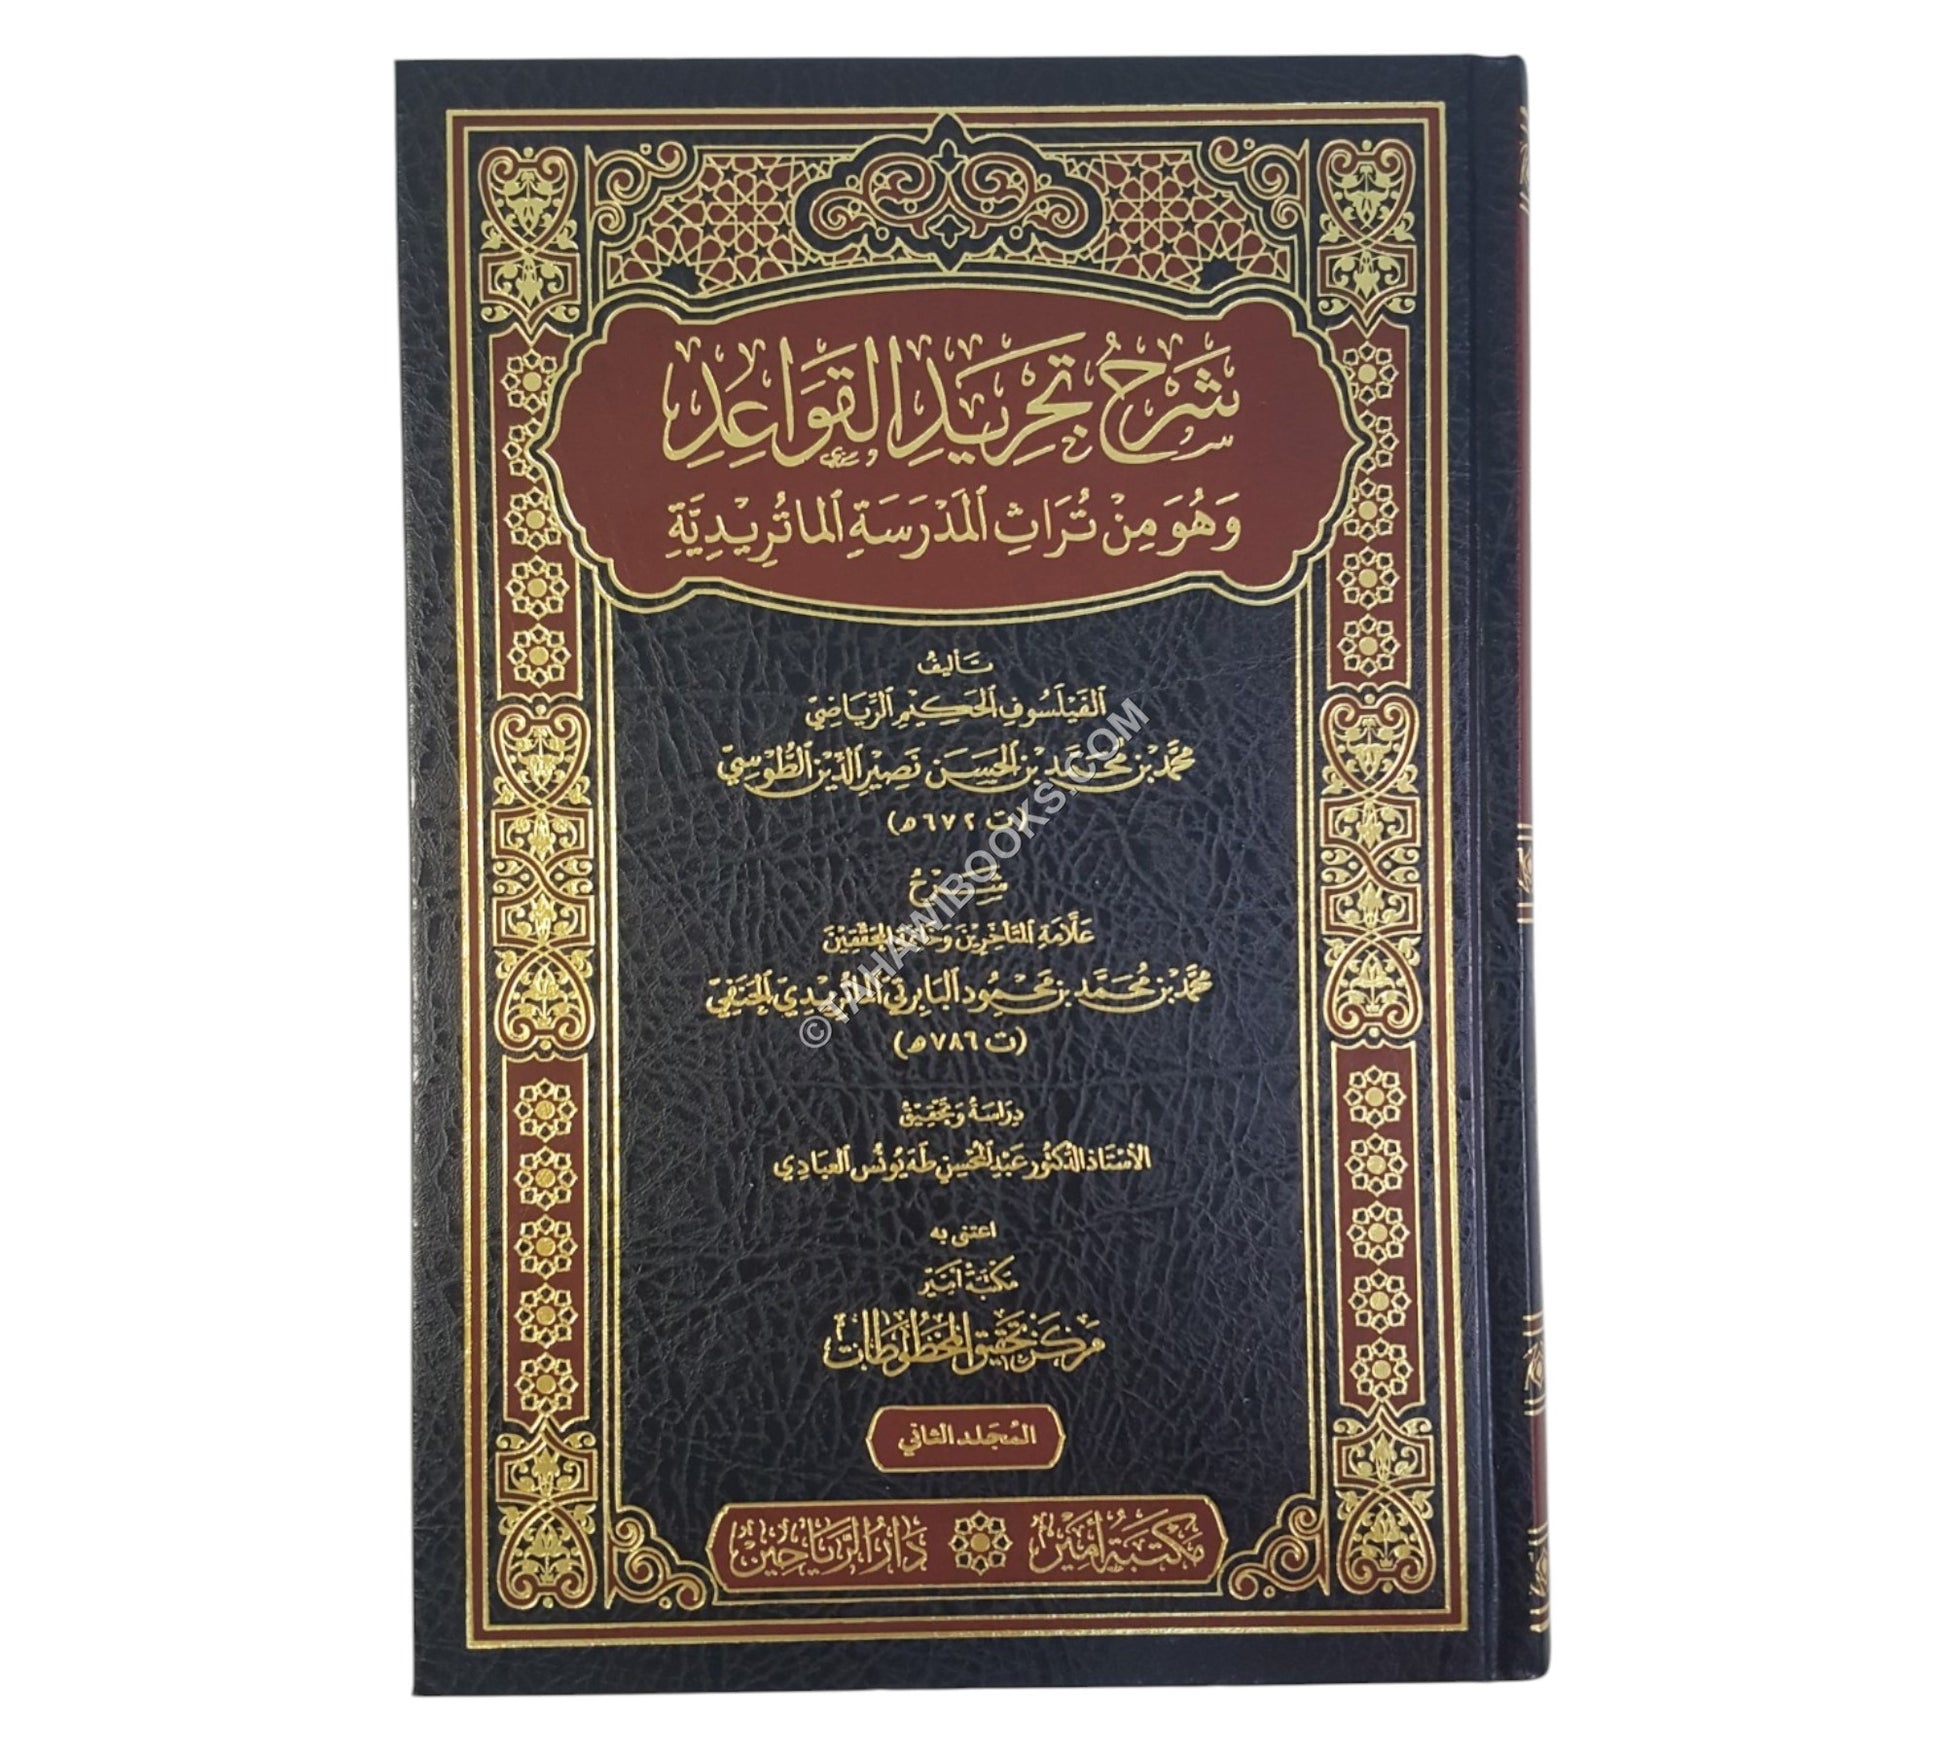 شَرْحُ تَجْرِيدِ القَوَاعِدِ
وَهُوَ مِنْ تُرَاثِ المَدْرَسَةِ الماتُرِيْدِيَّةِ
تَأليفُ
الفَيْلَسُوفِ الحَكِيْمِ الرِّيَاضِيِّ
مُحَمَّد بْن مُحَمَّد بْن الحَسَن نَصِيْرِ الدِّيْنِ الطُّوْسِيِّ
(ت ٦٧٢ هـ)
شَرْحُ
عَلَّامَةِ المُتَأخِّرِيْنَ وَخَاتمَةِ المُحَقِّقِيْنَ
مُحَمَّد بْن مُحَمَّد بْن مَحْمُود البَابِرتيّ المَاتُرِيْدِيّ الحَنَفِيّ
(ت ٧٨٦ هـ)
دِرَاسَةُ وَتَحْقِيْقُ
الأُسْتَاذ الدُّكتُور عَبْدِ المُحْسِنِ طَه يُونُس العبَادِي
اعتنى به
مَكْتَبَة أمِيْر
مَركَز تَحقيق المَخْطُوطَات
المُجَلد الثَّاني
مَكْتَبَة أمِيْر
دَارُ الرَّيَاحِيْن
©TAHAWIBOOKS.COM